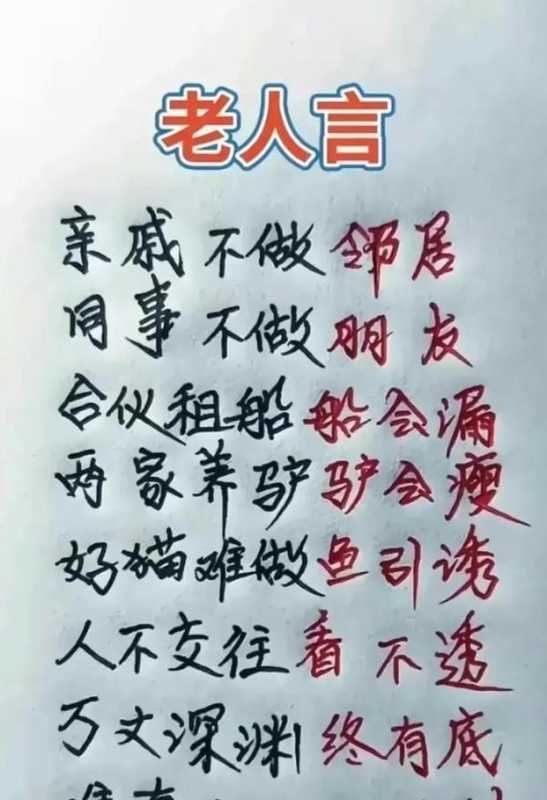 老人言
亲戚不做邻居
同事不做朋友
合伙租船船会漏
两家养驴驴会瘦
好猫难做鱼引诱
人不交往看不透
万丈深渊终有底